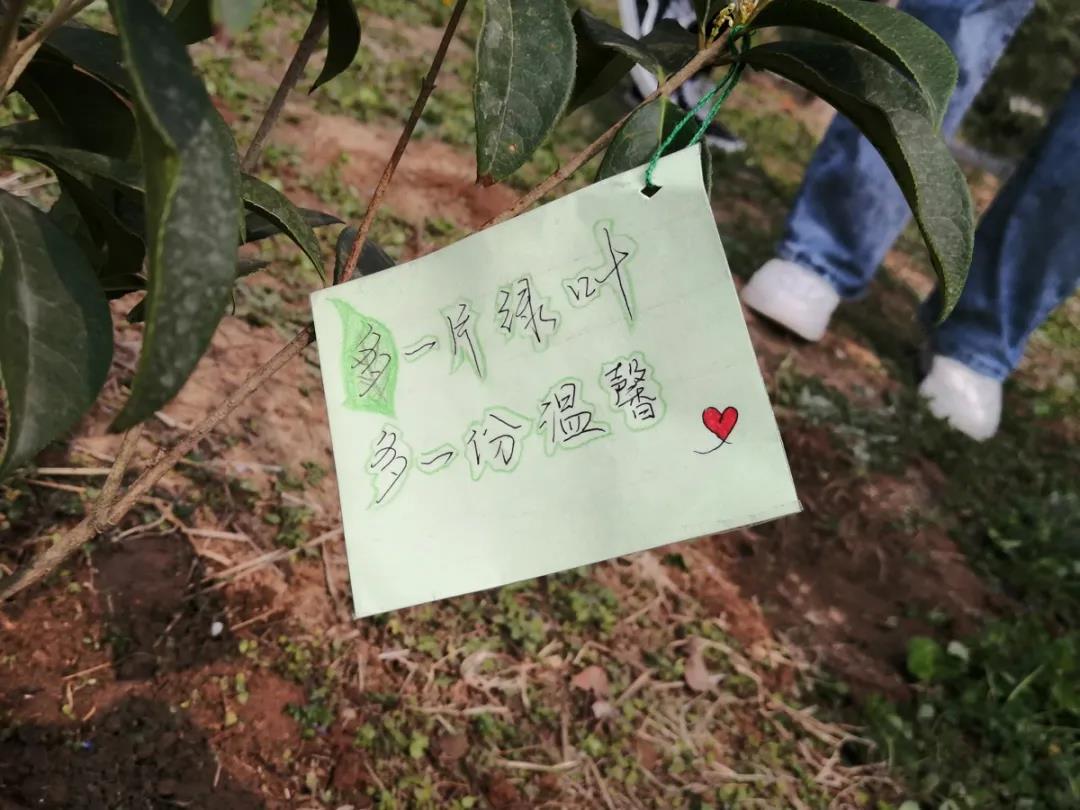 多一片绿叶
多一份温馨